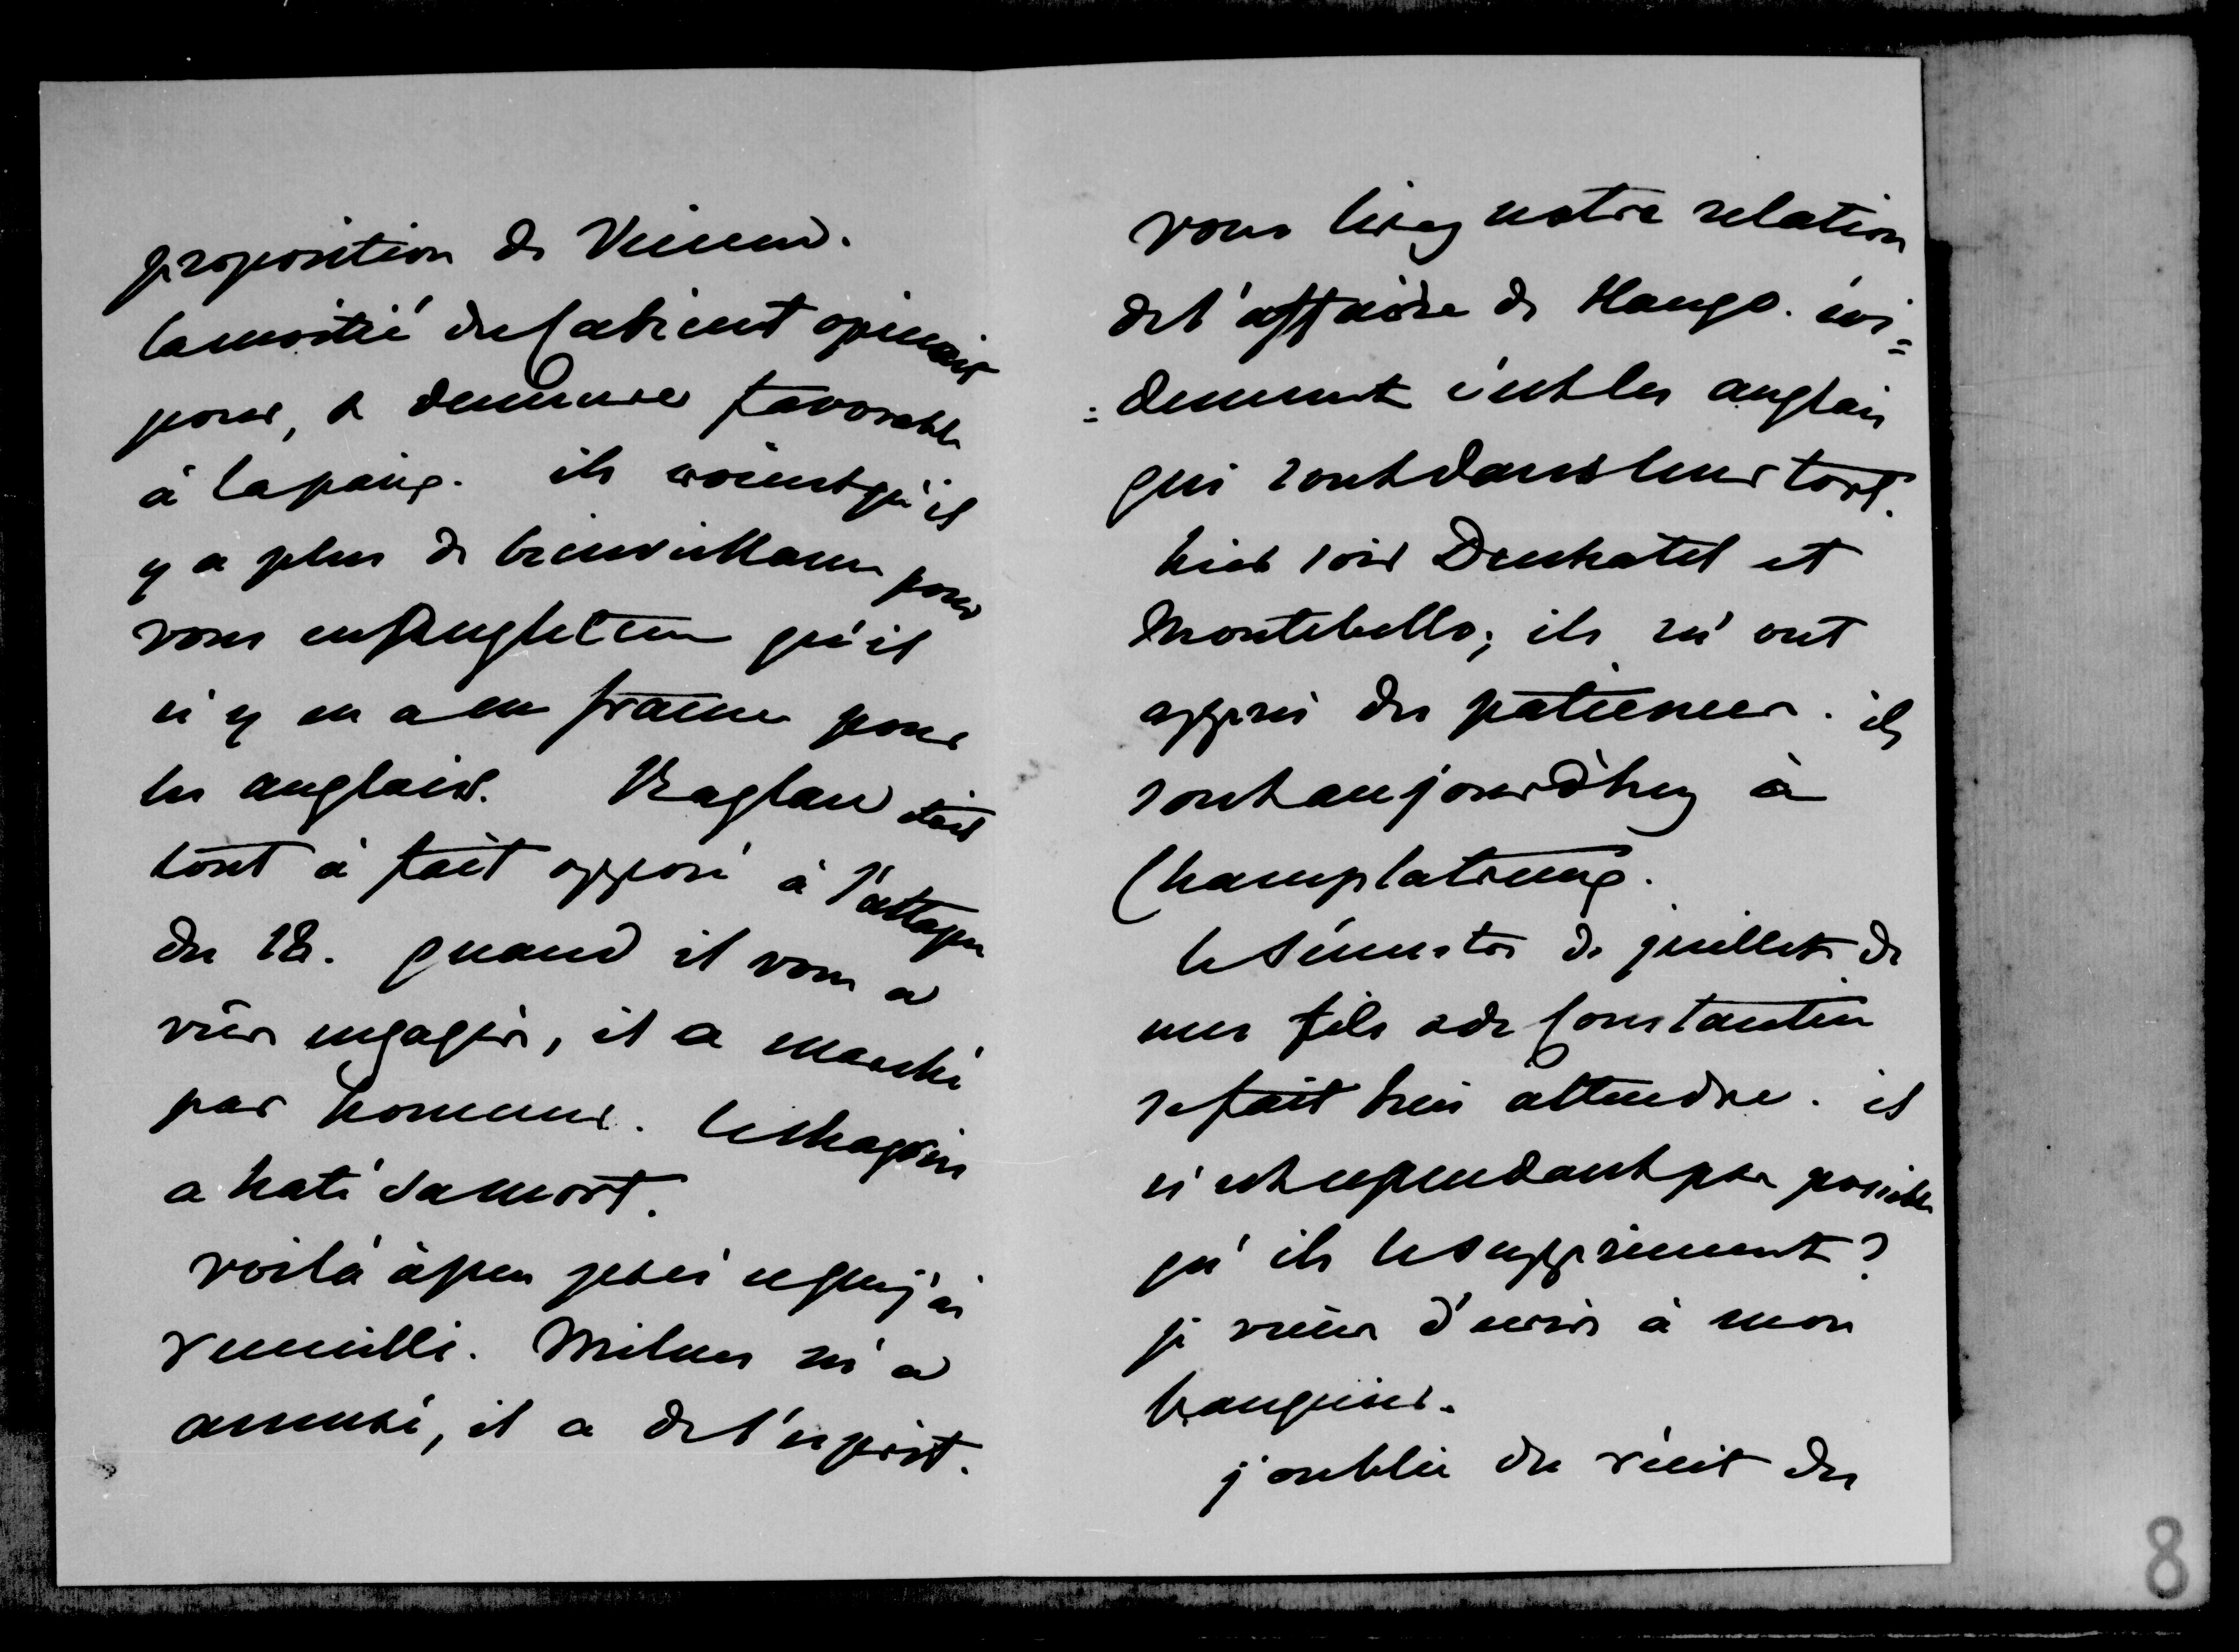 proposition de Vienne.
la moitié du Cabinet opinait
pour, & demeure favorable
à la paix. ils croient qu'il
y a plus de bienveillance pour
vous en Angleterre qu'il
n'y en a en france pour
les anglais. Raglan était
tout à fait opposé à l'attaque
du 18. quand il vous a
vus engagés, il a marché
par honneur. le chagrin
a haté sa mort.
voilà à peu près ce que j'ai
recueilli. Milnes m'a
amusé, il a de l'esprit.
vous lirez notre relation
de l'affaire de Hango. évi=
=demment c'est les anglais
qui sont dans leur tort.
hier soir Duchatel et
Montebello; ils m'ont
appris des patiences. ils
sont aujourd'huy à
Champlatreux.
le sémestre de juillet de
mes fils & de Constantin
se fait bien attendre. il
n'est cependant pas possible
qu'ils le suppriment?
je viens d'écrire à mon
banquier.
j'oublie du récit des
8